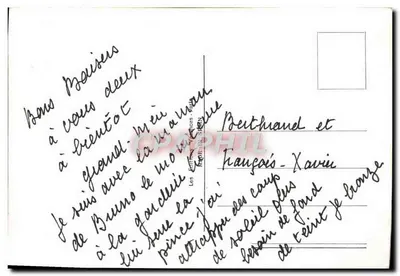 Bons Baisers
à vous deux
à bientôt
grand-mère
Je suis avec la maman
de Bruno le moniteur
à la garderie je
lui serre la
pince j'ai
attrapé des coups
de soleil plus
besoin de fond
de teint je bronze
Berthrand et
François-Xavier